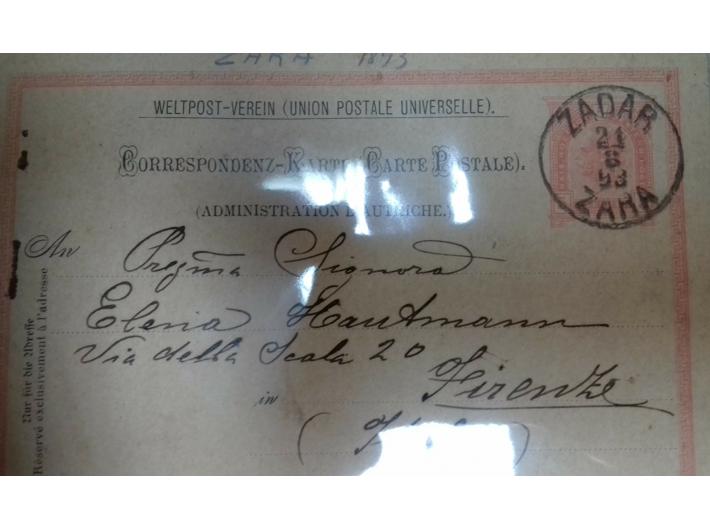 ZARA 1893
WELTPOST-VEREIN (UNION POSTALE UNIVERSELLE).
CORRESPONDENZ-KARTE (CARTE POSTALE).
(ADMINISTRATION D'AUTRICHE.)
ZADAR
21
6
93
ZARA
An Pregma Signora
Elena Hautmann
Via della Scala 20
in Firenze
Nur für die Adresse
Réservé exclusivement à l'adresse